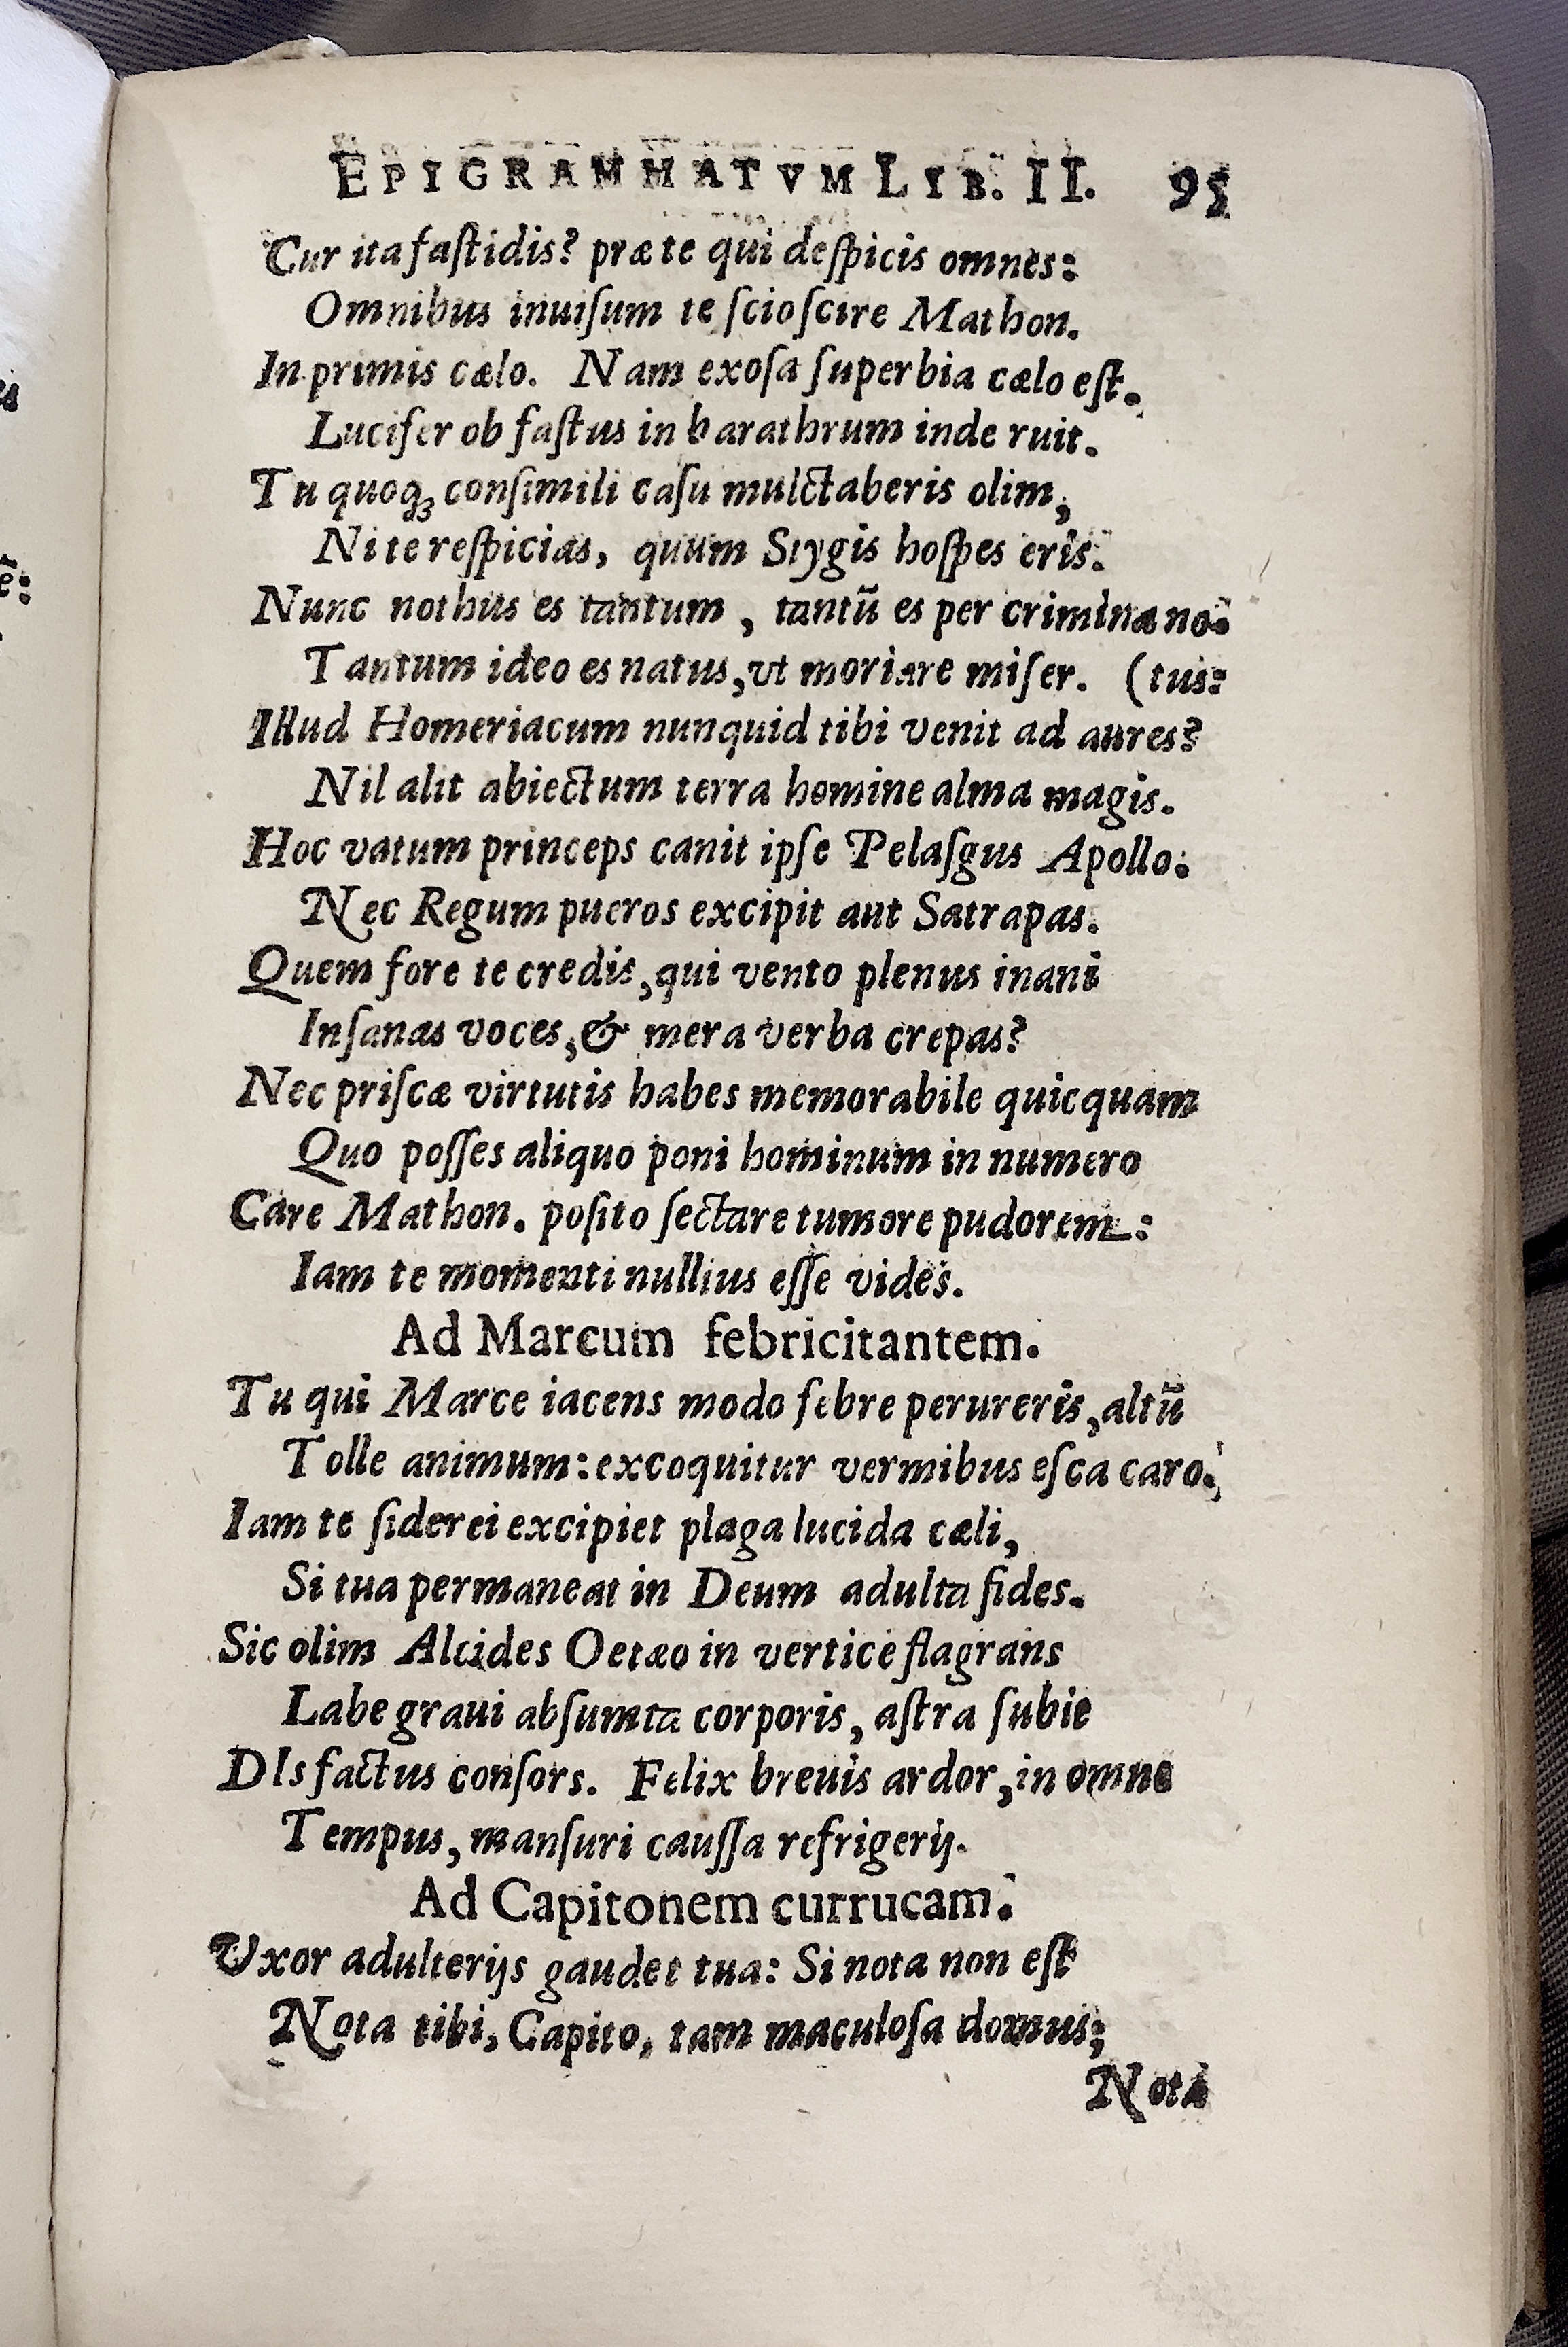 EPIGRAMMATVM LIB. II. 95
Cur ita faſtidis? præ te qui deſpicis omnes:
Omnibus inuiſum te ſcio ſcire Mathon.
In primis cælo. Nam exoſa ſuperbia cælo eſt.
Lucifer ob faſtus in barathrum inde ruit.
Tu quoqꝫ conſimili caſu mulctaberis olim,
Ni te reſpicias, quum Stygis hoſpes eris.
Nunc nothus es tantum, tantū es per crimina no-
Tantum ideo es natus, vt moriare miſer. (tus:
Illud Homeriacum nunquid tibi venit ad aures?
Nil alit abiectum terra homine alma magis.
Hoc vatum princeps canit ipſe Pelaſgus Apollo:
Nec Regum pueros excipit aut Satrapas.
Quem fore te credis, qui vento plenus inani
Inſanas voces, & mera verba crepas?
Nec priſcæ virtutis habes memorabile quicquam
Quo poſſes aliquo poni hominum in numero
Care Mathon. poſito ſectare tumore pudorem:
Iam te momenti nullius eſſe vides.
Ad Marcum febricitantem.
Tu qui Marce iacens modo febre perureris, altū
Tolle animum: excoquitur vermibus eſca caro.
Iam te ſiderei excipiet plaga lucida cæli,
Si tua permaneat in Deum adulta fides.
Sic olim Alcides Oetæo in vertice flagrans
Labe graui abſumta corporis, aſtra ſubie
DIs factus conſors. Felix breuis ardor, in omne
Tempus, manſuri cauſſa refrigerij.
Ad Capitonem currucam.
Vxor adulterijs gaudet tua: Si nota non eſt
Nota tibi, Capito, tam maculoſa domus;
Nota